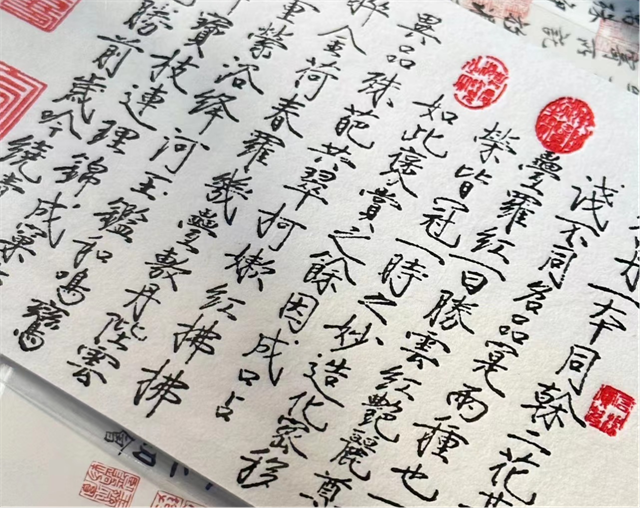 丹一本同榦二花其
淺不同名品寔兩種也一
疊羅紅一曰勝雲紅艷麗尊
榮皆冠一時之妙造化密移
如此褒賞之餘因成口占
異品殊葩共翠柯嫩紅拂拂
醉金荷春羅幾疊敷丹陛雲
重縈浴絳河玉鑑和鳴鸞
寶枝連理錦成窠
勝前歲吟繞清